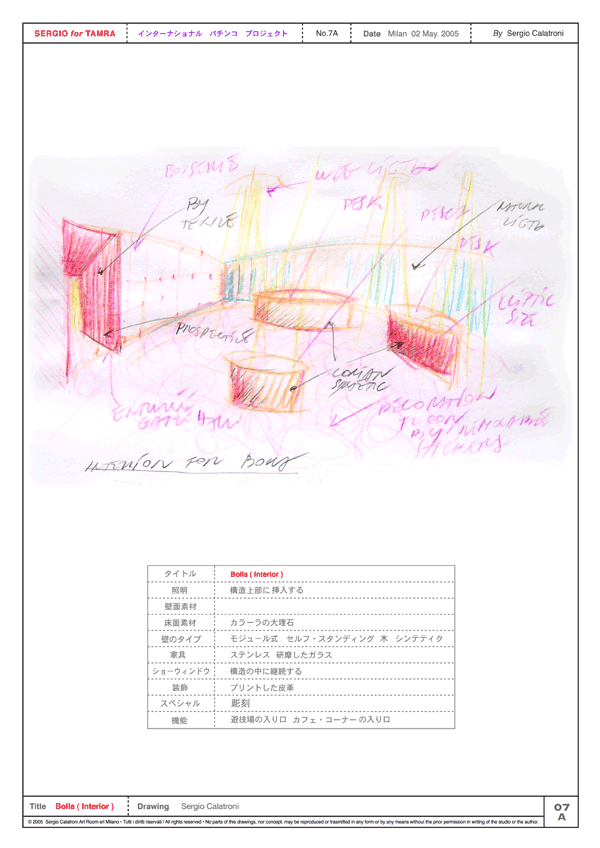 SERGIO for TAMRA
インターナショナル パチンコ プロジェクト
No.7A
Date Milan 02 May. 2005
By Sergio Calatroni
BOISERIE
WEB LIGTH
DESK
DESK
DESK
BY
TEXILE
NATURAL
LIGTH
PROSPECTIVE
SIZE
CORIAN
DECORATION
BY
INTERIOR FOR
タイトル Bolla ( Interior )
照明 構造上部に挿入する
壁面素材
床面素材 カラーラの大理石
壁のタイプ モジュール式 セルフ・スタンディング 木 シンテティク
家具 ステンレス 研磨したガラス
ショーウィンドウ 構造の中に継続する
装飾 プリントした皮革
スペシャル 彫刻
機能 遊技場の入り口 カフェ・コーナーの入り口
Title Bolla ( Interior )
Drawing Sergio Calatroni
07
A
© 2005 Sergio Calatroni Art Room srl Milano • Tutti i diritti riservati / All rights reserved • No parts of this drawings, nor concept, may be reproduced or trasmitted in any form or by any means without the prior permission in writing of the studio or the author.